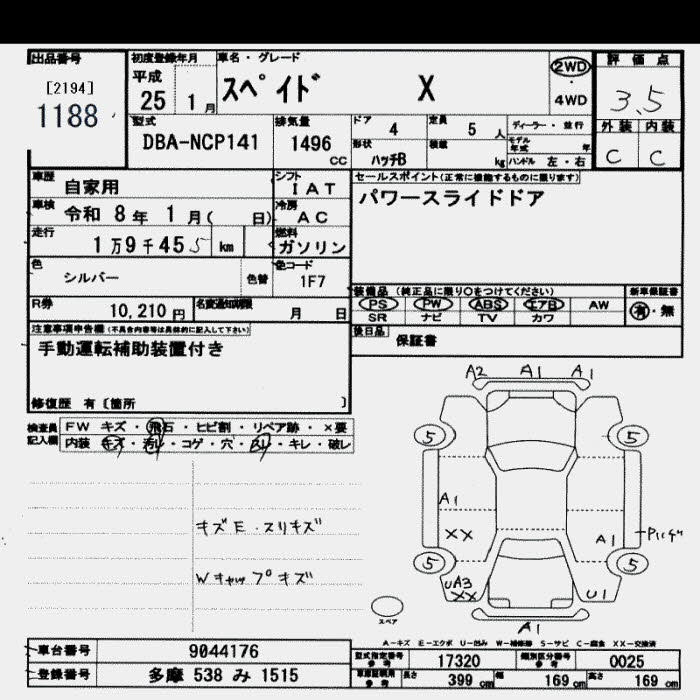 出品番号
[2194]
1188
初度登録年月
平成
25 1月
車名・グレード
スペイド X
2WD
・
4WD
評価点
3.5
外装 内装
C C
型式
DBA-NCP141
排気量
1496
CC
ドア 4
定員 5 人
ディーラー・並行
形状 ハッチB
積載 kg
モデル年式 年
ハンドル 左・右
車歴 自家用
シフト
IAT
車検 令和 8年 1月( 日)
冷房
AC
走行 1万9千455 km
燃料
ガソリン
色 シルバー
色替
色コード
1F7
R券 10,210円
名変通知期限 月 日
セールスポイント(正常に機能するものに限ります)
パワースライドドア
装備品 (純正品に限り○をつけてください)
PS PW ABS エアB AW
SR ナビ TV カワ
新車保証書
有・無
後日品 保証書
注意事項申告欄(不具合内容等は具体的に記入して下さい)
手動運転補助装置付き
修復歴 有〔箇所 〕
検査員記入欄
FW キズ・飛石・ヒビ割・リペア跡・×要
内装 キズ・汚レ・コゲ・穴・スレ・キレ・破レ
キズE・スリキズ
Wキャップキズ
A2 A1 A1
5 5
A1
XX
A1 Pはげ
5 5
UA3
XX
U1
A1
スペア
A-キズ E-エクボ U-凹み W-補修跡 S-サビ C-腐食 XX-交換済
車台番号 9044176
登録番号 多摩 538 み 1515
型式指定番号
参考
17320
類別区分番号
参考
0025
車庫証明用
参考
長さ 399 cm 幅 169 cm 高さ 169 cm